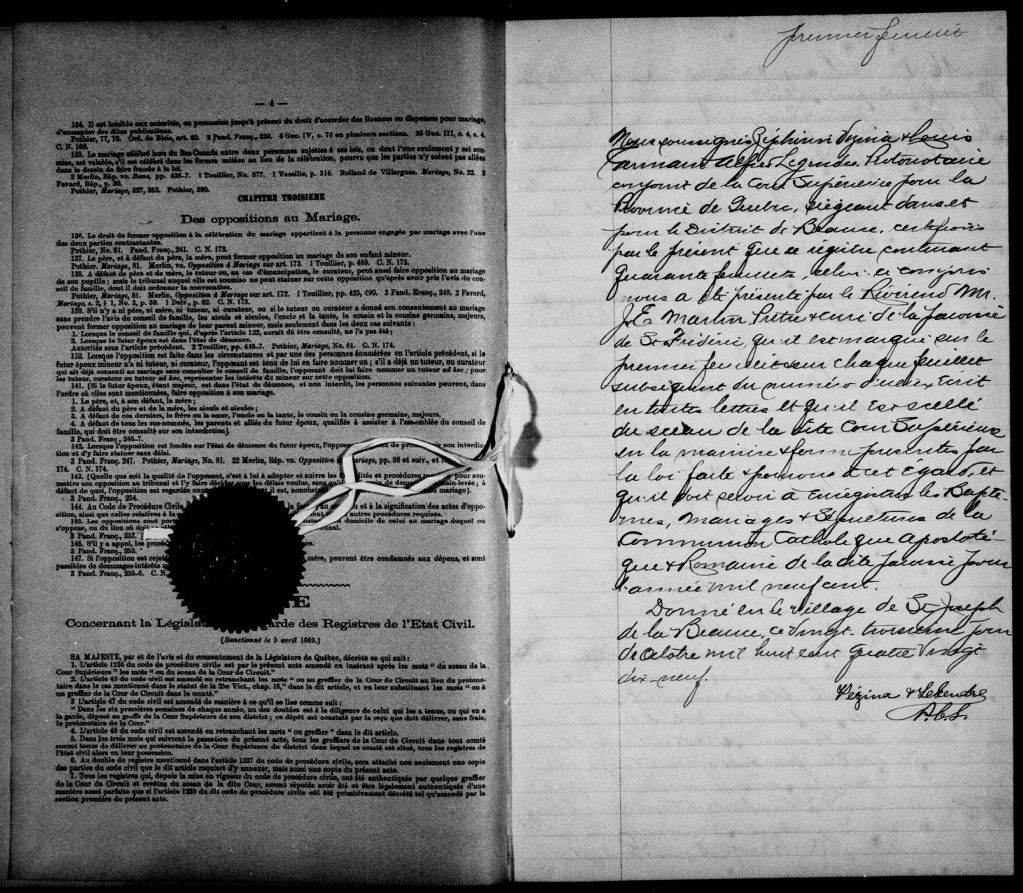 — 4 —
134. Il est loisible aux autorités, en possession jusqu'à présent du droit d'accorder des licences ou dispenses pour mariage,
d'exempter des dites publications.
Pothier, 77, 78. Ord. de Blois, art. 40. 2 Pand. Franç., 224. 4 Geo. IV, c. 76 en plusieurs sections. 35 Geo. III, c. 4, s. 4.
C. N. 169.
135. Le mariage célébré hors du Bas-Canada entre deux personnes sujettes à ses lois, ou dont l'une seulement y est sou-
mise, est valable, s'il est célébré dans les formes usitées au lieu de la célébration, pourvu que les parties n'y soient pas allées
dans le dessein de faire fraude à la loi.
2 Merlin, Rép. vo. Bans, pp. 436-7. 1 Touillier, No. 577. 1 Vazeille, p. 314. Rolland de Villargues. Mariage, No. 22. 3
Favard, Rép., p. 90.
Pothier, Mariage, 327, 363. Pothier, 390.
CHAPITRE TROISIEME
Des oppositions au Mariage.
136. Le droit de former opposition à la célébration du mariage appartient à la personne engagée par mariage avec l'une
des deux parties contractantes.
Pothier, No. 81. Pand. Franç., 241. C. N. 172.
137. Le père, et à défaut du père, la mère, peut former opposition au mariage de son enfant mineur.
Pothier. Mariage, 81. Merlin, vo. Opposition à Mariage sur art. 173. 1 Touillier, p. 489. C. N. 173.
138. A défaut de père et de mère, le tuteur ou, au cas d'émancipation, le curateur, peut aussi faire opposition au mariage
de son pupille; mais le tribunal auquel elle est soumise ne peut statuer sur son mérite qu'après avoir pris l'avis du con-
seil de famille, dont il doit ordonner la convocation.
Pothier, Mariage, 81. Merlin, Opposition à Mariage sur art. 172. 1 Touillier, pp. 425, 490. 3 Pand. Franç., 248. 2 Favard,
Mariage, s. 2, § 1, No. 3, p. 59. 1 Delv., p. 62. C. N. 175.
139. S'il n'y a ni père, ni mère, ni tuteur, ni curateur, ou si le tuteur ou curateur a donné son consentement au mariage
sans prendre l'avis du conseil de famille, les aïeuls et aïeules, l'oncle et la tante, le cousin et la cousine germains, majeurs,
peuvent former opposition au mariage de leur parent mineur, mais seulement dans les deux cas suivants :
1. Lorsque le conseil de famille qui, d'après l'article 122, aurait dû être consulté, ne l'a pas été ;
2. Lorsque le futur époux est dans l'état de démence.
Autorités sous l'article précédent. 2 Touillier, 416-7. Pothier, Mariage, No. 81. C. N. 174.
140. Lorsque l'opposition est faite dans les circonstances et par une des personnes énumérées en l'article précédent, si le
futur époux mineur n'a ni tuteur, ni curateur, l'opposant est tenu de lui en faire nommer un ; s'il a déjà un tuteur, ou curateur
qui ait déjà consenti au mariage sans consulter le conseil de famille, l'opposant doit lui faire nommer un tuteur ad hoc ; pour
les tuteur, curateur ou tuteur ad hoc, représenter les intérêts du mineur sur cette opposition.
141. [Si le futur époux, étant majeur, est dans l'état de démence, et non interdit, les personnes suivantes peuvent, dans
l'ordre où elles sont mentionnées, faire opposition à son mariage.
1. Le père, et, à son défaut, la mère ;
2. A défaut du père et de la mère, les aïeuls et aïeules ;
3. A défaut de ces derniers, le frère ou la sœur, l'oncle ou la tante, le cousin ou la cousine germains, majeurs.
4. A défaut de tous les sus-nommés, les parents et alliés du futur époux, qualifiés à assister à l'assemblée du conseil de
famille, qui doit être consulté sur son interdiction].
3 Pand. Franç., 246-7.
142. Lorsque l'opposition est fondée sur l'état de démence du futur époux, l'oppos
son interdic-
tion et d'y faire statuer sans délai.
3 Pand. Franç. 247. Pothier, Mariage, No. 81. 22 Merlin, Rép. vo. Opposition à Mariage, pp. 88 et suiv., et No.
174. C. N. 174.
143. [Quelle que soit la qualité de l'opposant, c'est à lui à adopter et suivre les
mettre son opposition au tribunal et l'y faire décider que les délais voulus, sans qu
défaut de quoi, l'opposition est regardée comme
3 Pand. Franç., 254.
144. Au Code de Procédure Civile
et à la signification des actes d'oppo-
sition, ainsi que celles relatives à la
autres procédures requises.
145. Les oppositions sont por
domicile de celui au mariage duquel on
s'oppose, ou du lieu où doit
3 Pand. Franç., 253.
146. S'il y a appel, les procéd
3 Pand. Franç., 253.
147. Si l'opposition est rejet
mère, peuvent être condamnés aux dépens, et sont
passibles de dommages-intérêts
3 Pand. Franç., 255-6. C. N.
E
Concernant la Législat
arde des Registres de l'Etat Civil.
[Sanctionné le 5 avril 1869.]
SA MAJESTÉ, par et de l'avis et du consentement de la Législature de Québec, décrète ce qui suit :
1. L'article 1236 du code de procédure civile est par le présent acte amendé en insérant après les mots " du sceau de la
Cour Supérieure " les mots " ou du sceau de la Cour de Circuit."
2. L'article 45 du code civil est amendé en retranchant les mots " ou au greffier de la Cour de Circuit au lieu du protono-
taire dans le cas mentionné dans le statut de la 25e Vict., chap. 16," dans le dit article, et en leur substituant les mots " ou à
un greffier de la Cour de Circuit dans le comté."
3. L'article 47 du code civil est amendé de manière à ce qu'il se lise comme suit :
" Dans les six premières semaines de chaque année, un des doubles est à la diligence de celui qui les a tenus, ou qui en a
la garde, déposé au greffe de la Cour Supérieure de son district ; ce dépôt est constaté par le reçu que doit délivrer, sans frais,
le protonotaire de la Cour."
4. L'article 48 du code civil est amendé en retranchant les mots " ou greffier " dans le dit article.
5. Dans les trois mois qui suivront la passation du présent acte, tous les greffiers de la Cour de Circuit dans tout comté
seront tenus de délivrer au protonotaire de la Cour Supérieure du district dans lequel ce comté est situé, tous les registres de
l'état civil alors en leur possession.
6. Au double du registre mentionné dans l'article 1237 du code de procédure civile, sera attaché non seulement une copie
des parties du code civil que le dit article requiert d'y annexer, mais aussi une copie du présent acte.
7. Tous les registres qui, depuis la mise en vigueur du code de procédure civile, ont été authentiqués par quelque greffier
de la Cour de Circuit et revêtus du sceau de la dite Cour, seront réputés avoir été et être légalement authentiqués d'une
manière aussi parfaite que si l'article 1236 du dit code de procédure civile eut été primitivement décrété tel qu'amendé par la
section première du présent acte.
premier feuillet
Nous soussignés Zéphirin Vézina & Louis
Armand Alfred Legendre Protonotaire
conjoint de la Cour Supérieure pour la
Province de Québec, siégeant dans et
pour le District de Beauce, certifions
par le présent que ce régitre contenant
Quarante feuillets, celui-ci compris
nous a été présenté par le Révérend Mr.
J. E. Martin Prêtre & curé de la paroisse
de St Fréderic, qu'il est marqué sur le
premier feuillet & sur chaque feuillet
subséquent du numéro d'iceux écrit
en toutes lettres et qu'il est scellé
du sceau de la dite Cour Supérieure
en la manière & forme prescrites par
la loi faite & pourvue à cet égard, et
qu'il doit servir à enrégistrer les Baptê-
mes, Mariages & Sépultures de la
Communion Catholique Apostoli-
que & Romaine de la dite Paroisse pour
l'année mil neuf cent.
Donné en le village de St Joseph
de la Beauce, ce vingt-troisième jour
de Octobre mil huit cent quatre vingt
dix-neuf.
Vézina & Legendre
P.C.S.